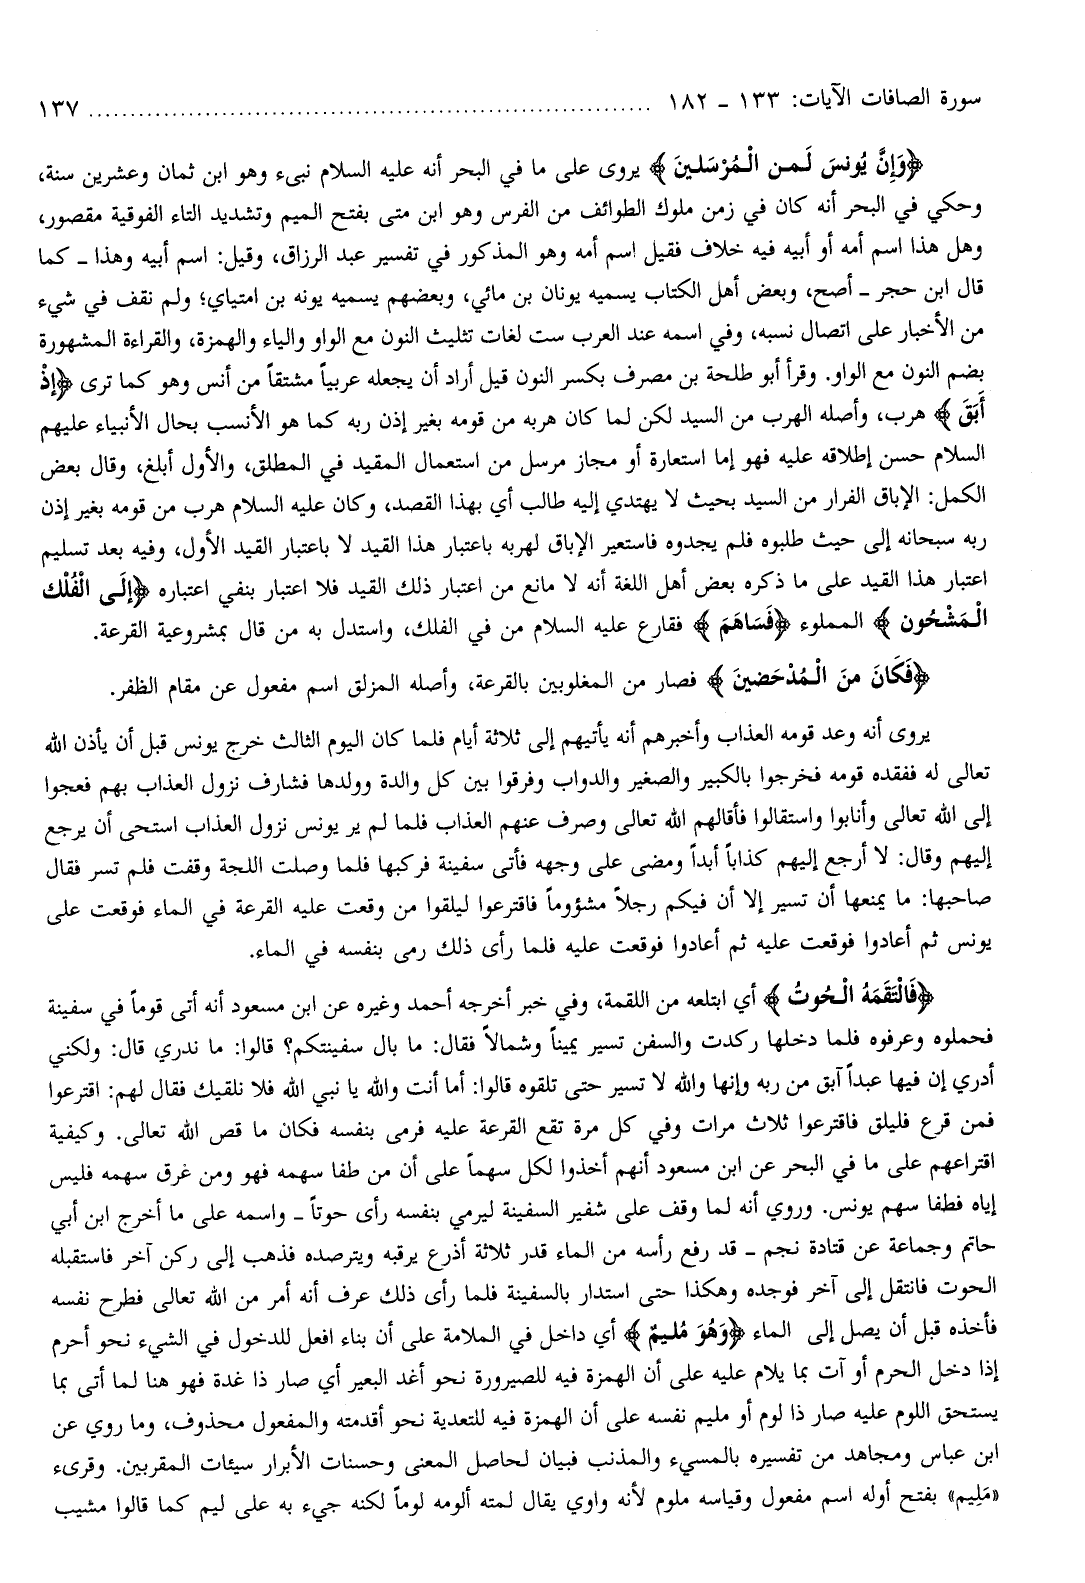 سورة الصافات الآيات: ١٣٣ ـ ١٨٢ ........................................................................ ١٣٧
﴿وَإِنَّ يُونسَ لَمن الْمُرْسَلينَ﴾ يروى على ما في البحر أنه عليه السلام نبىء وهو ابن ثمان وعشرين سنة،
وحكي في البحر أنه كان في زمن ملوك الطوائف من الفرس وهو ابن متى بفتح الميم وتشديد التاء الفوقية مقصور،
وهل هذا اسم أمه أو أبيه فيه خلاف فقيل اسم أمه وهو المذكور في تفسير عبد الرزاق، وقيل: اسم أبيه وهذا ـ كما
قال ابن حجر ـ أصح، وبعض أهل الكتاب يسميه يونان بن مائي، وبعضهم يسميه يونه بن امتياي؛ ولم نقف في شيء
من الأخبار على اتصال نسبه، وفي اسمه عند العرب ست لغات تثليث النون مع الواو والياء والهمزة، والقراءة المشهورة
بضم النون مع الواو. وقرأ أبو طلحة بن مصرف بكسر النون قيل أراد أن يجعله عربياً مشتقاً من أنس وهو كما ترى ﴿إذْ
أَبَقَ﴾ هرب، وأصله الهرب من السيد لكن لما كان هربه من قومه بغير إذن ربه كما هو الأنسب بحال الأنبياء عليهم
السلام حسن إطلاقه عليه فهو إما استعارة أو مجاز مرسل من استعمال المقيد في المطلق، والأول أبلغ، وقال بعض
الكمل: الإباق الفرار من السيد بحيث لا يهتدي إليه طالب أي بهذا القصد، وكان عليه السلام هرب من قومه بغير إذن
ربه سبحانه إلى حيث طلبوه فلم يجدوه فاستعير الإباق لهربه باعتبار هذا القيد لا باعتبار القيد الأول، وفيه بعد تسليم
اعتبار هذا القيد على ما ذكره بعض أهل اللغة أنه لا مانع من اعتبار ذلك القيد فلا اعتبار بنفي اعتباره ﴿إلَى الْفُلْك
الْمَشْحُون﴾ المملوء ﴿فَسَاهَمَ﴾ فقارع عليه السلام من في الفلك، واستدل به من قال بمشروعية القرعة.
﴿فَكَانَ منَ الْمُدْحَضينَ﴾ فصار من المغلوبين بالقرعة، وأصله المزلق اسم مفعول عن مقام الظفر.
يروى أنه وعد قومه العذاب وأخبرهم أنه يأتيهم إلى ثلاثة أيام فلما كان اليوم الثالث خرج يونس قبل أن يأذن الله
تعالى له ففقده قومه فخرجوا بالكبير والصغير والدواب وفرقوا بين كل والدة وولدها فشارف نزول العذاب بهم فعجوا
إلى الله تعالى وأنابوا واستقالوا فأقالهم الله تعالى وصرف عنهم العذاب فلما لم ير يونس نزول العذاب استحى أن يرجع
إليهم وقال: لا أرجع إليهم كذاباً أبداً ومضى على وجهه فأتى سفينة فركبها فلما وصلت اللجة وقفت فلم تسر فقال
صاحبها: ما يمنعها أن تسير إلا أن فيكم رجلاً مشؤوماً فاقترعوا ليلقوا من وقعت عليه القرعة في الماء فوقعت على
يونس ثم أعادوا فوقعت عليه ثم أعادوا فوقعت عليه فلما رأى ذلك رمى بنفسه في الماء.
﴿فَالْتَقَمَهُ الْحُوتُ﴾ أي ابتلعه من اللقمة، وفي خبر أخرجه أحمد وغيره عن ابن مسعود أنه أتى قوماً في سفينة
فحملوه وعرفوه فلما دخلها ركدت والسفن تسير يميناً وشمالاً فقال: ما بال سفينتكم؟ قالوا: ما ندري قال: ولكني
أدري إن فيها عبداً آبق من ربه وإنها والله لا تسير حتى تلقوه قالوا: أما أنت والله يا نبي الله فلا نلقيك فقال لهم: اقترعوا
فمن قرع فليلق فاقترعوا ثلاث مرات وفي كل مرة تقع القرعة عليه فرمى بنفسه فكان ما قص الله تعالى. وكيفية
اقتراعهم على ما في البحر عن ابن مسعود أنهم أخذوا لكل سهماً على أن من طفا سهمه فهو ومن غرق سهمه فليس
إياه فطفا سهم يونس. وروي أنه لما وقف على شفير السفينة ليرمي بنفسه رأى حوتاً ـ واسمه على ما أخرج ابن أبي
حاتم وجماعة عن قتادة نجم ـ قد رفع رأسه من الماء قدر ثلاثة أذرع يرقبه ويترصده فذهب إلى ركن آخر فاستقبله
الحوت فانتقل إلى آخر فوجده وهكذا حتى استدار بالسفينة فلما رأى ذلك عرف أنه أمر من الله تعالى فطرح نفسه
فأخذه قبل أن يصل إلى الماء ﴿وَهُوَ مُليمٌ﴾ أي داخل في الملامة على أن بناء افعل للدخول في الشيء نحو أحرم
إذا دخل الحرم أو آت بما يلام عليه على أن الهمزة فيه للصيرورة نحو أغد البعير أي صار ذا غدة فهو هنا لما أتى بما
يستحق اللوم عليه صار ذا لوم أو مليم نفسه على أن الهمزة فيه للتعدية نحو أقدمته والمفعول محذوف، وما روي عن
ابن عباس ومجاهد من تفسيره بالمسيء والمذنب فبيان لحاصل المعنى وحسنات الأبرار سيئات المقربين. وقرىء
«مَلِيم» بفتح أوله اسم مفعول وقياسه ملوم لأنه واوي يقال لمته ألومه لوماً لكنه جيء به على ليم كما قالوا مشيب